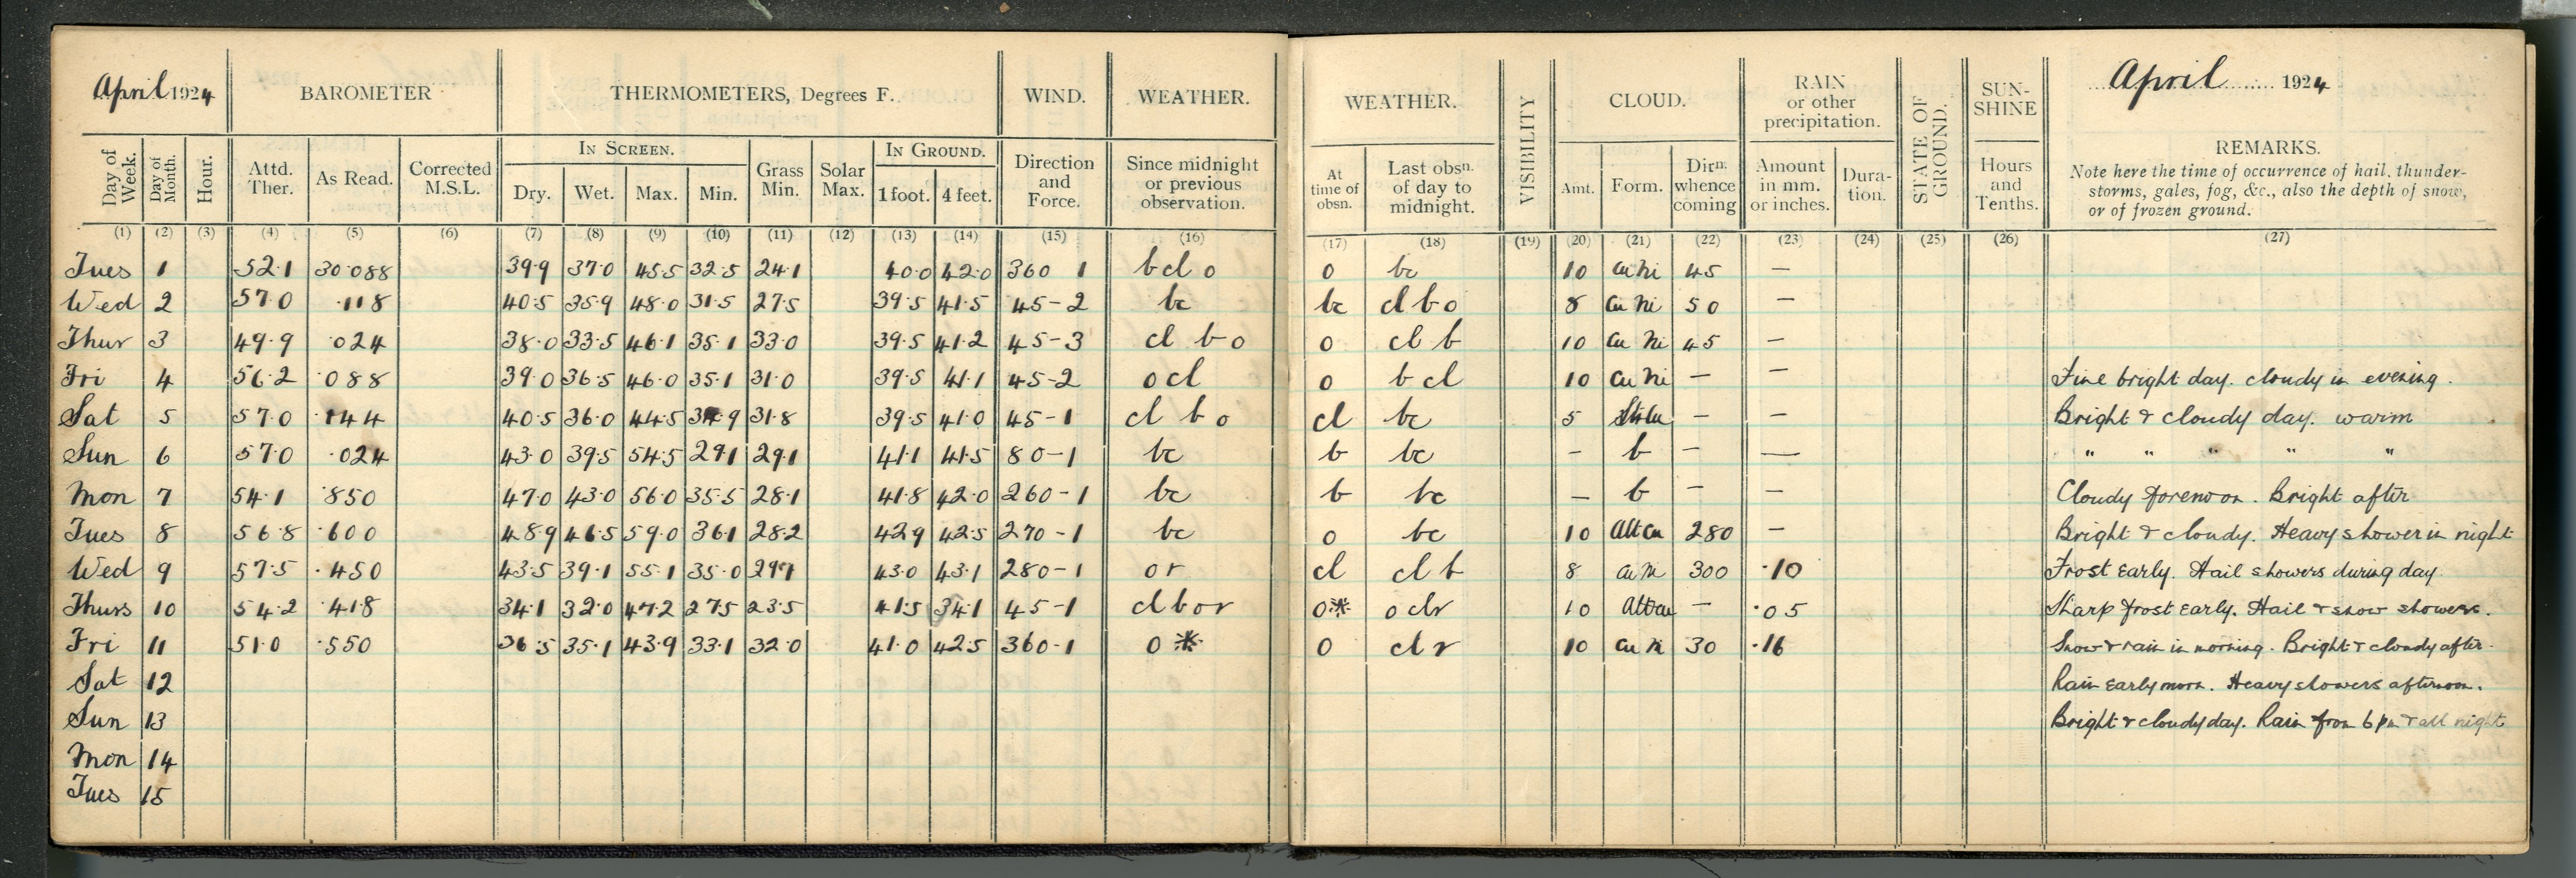 April 1924 BAROMETER THERMOMETERS, Degrees F. WIND. WEATHER. WEATHER. VISIBILITY CLOUD. RAIN or other precipitation. STATE OF GROUND. SUN-SHINE April 1924
Day of Week. Day of Month. Hour. Attd. Ther. As Read. Corrected M.S.L. IN SCREEN. Dry. Wet. Max. Min. Grass Min. Solar Max. IN GROUND. 1 foot. 4 feet. Direction and Force. Since midnight or previous observation. At time of obsn. Last obsn. of day to midnight. Amt. Form. Dirn. whence coming Amount in mm. or inches. Dura-tion. Hours and Tenths. REMARKS.
Note here the time of occurrence of hail, thunder-
storms, gales, fog, &c., also the depth of snow,
or of frozen ground.
(1) (2) (3) (4) (5) (6) (7) (8) (9) (10) (11) (12) (13) (14) (15) (16) (17) (18) (19) (20) (21) (22) (23) (24) (25) (26) (27)
Tues 1 52.1 30.088 39.9 37.0 45.5 32.5 24.1 40.0 42.0 360 1 bclo o bc 10 cu ni 45 —
Wed 2 57.0 .118 40.5 35.9 48.0 31.5 27.5 39.5 41.5 45-2 bc bc cl b o 8 cu ni 50 —
Thur 3 49.9 .024 38.0 33.5 46.1 35.1 33.0 39.5 41.2 45-3 cl b o o cl b 10 cu ni 45 —
Fri 4 56.2 .088 39.0 36.5 46.0 35.1 31.0 39.5 41.1 45-2 o cl o b cl 10 cu ni — — Fine bright day. cloudy in evening.
Sat 5 57.0 .144 40.5 36.0 44.5 9 31.8 39.5 41.0 45-1 cl b o cl bc 5 — — Bright & cloudy day. warm
Sun 6 57.0 .024 43.0 39.5 54.5 29.1 29.1 41.1 41.5 80-1 bc b bc — b — — " " " " "
Mon 7 54.1 .850 47.0 43.0 56.0 35.5 28.1 41.8 42.0 260-1 bc b bc — b — — Cloudy forenoon. Bright after
Tues 8 56.8 .600 48.9 46.5 59.0 36.1 28.2 42.9 42.5 270-1 bc o bc 10 alt cu 280 — Bright & cloudy. Heavy shower in night
Wed 9 57.5 .450 43.5 39.1 55.1 35.0 29.1 43.0 43.1 280-1 o r cl cl b 8 cu ni 300 .10 Frost early. Hail showers during day.
Thurs 10 54.2 .418 34.1 32.0 47.2 27.5 23.5 41.5 34.1 45-1 cl b o r o* o clr 10 alt cu — .05 Sharp frost early. Hail & snow showers.
Fri 11 51.0 .550 36.5 35.1 43.9 33.1 32.0 41.0 42.5 360-1 o * o cl r 10 cu ni 30 .16 Snow & rain in morning. Bright & cloudy after.
Sat 12 Rain early morn. Heavy showers afternoon.
Sun 13 Bright & cloudy day. Rain from 6 pm & all night
Mon 14
Tues 15